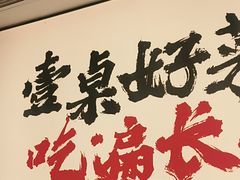 壹桌好
吃遍长